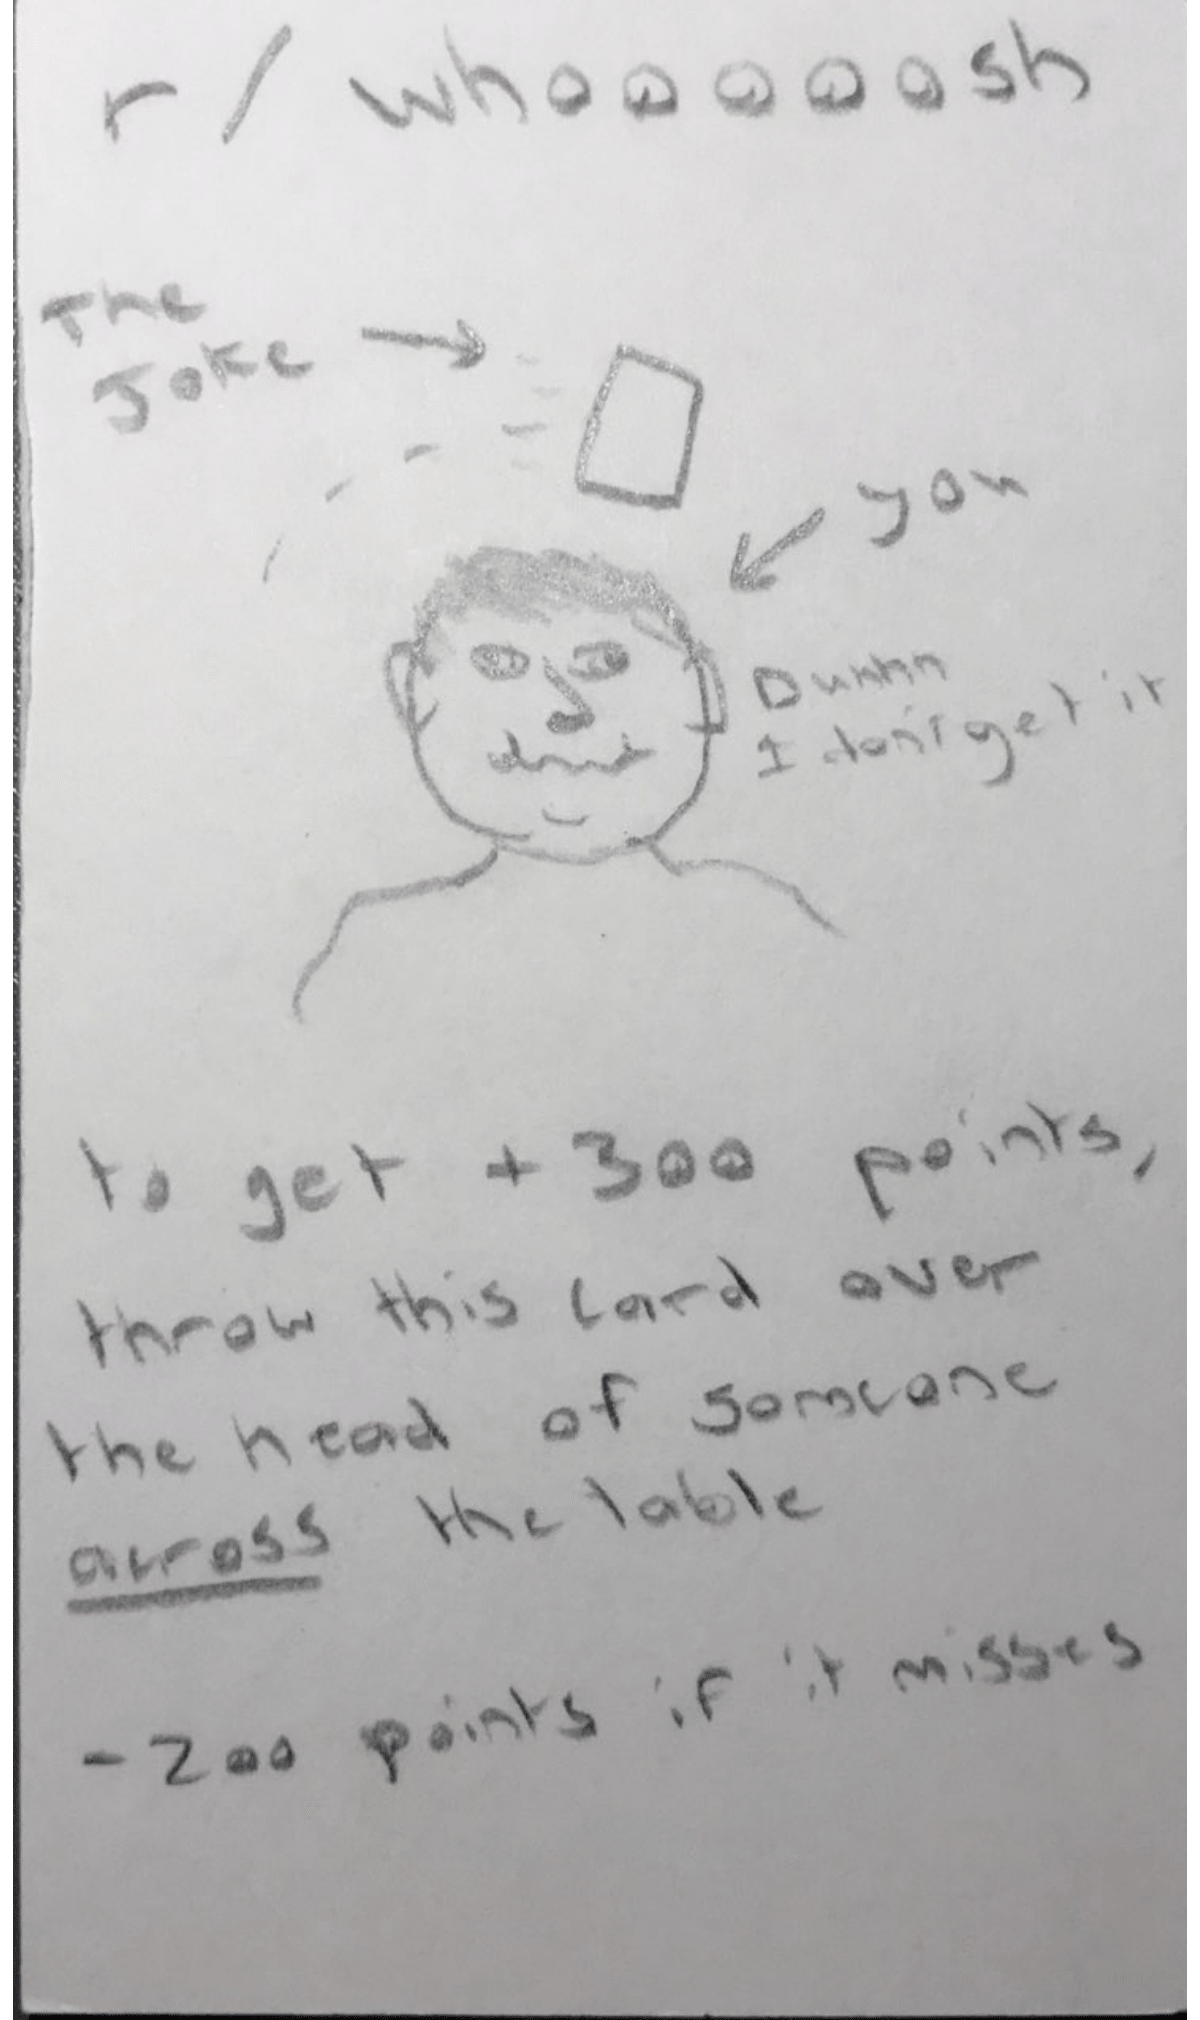 r/whooooosh
The
Joke
you
Duhhh
I don't get it
to get +300 points,
throw this card over
the head of someone
across the table
-200 points if it misses